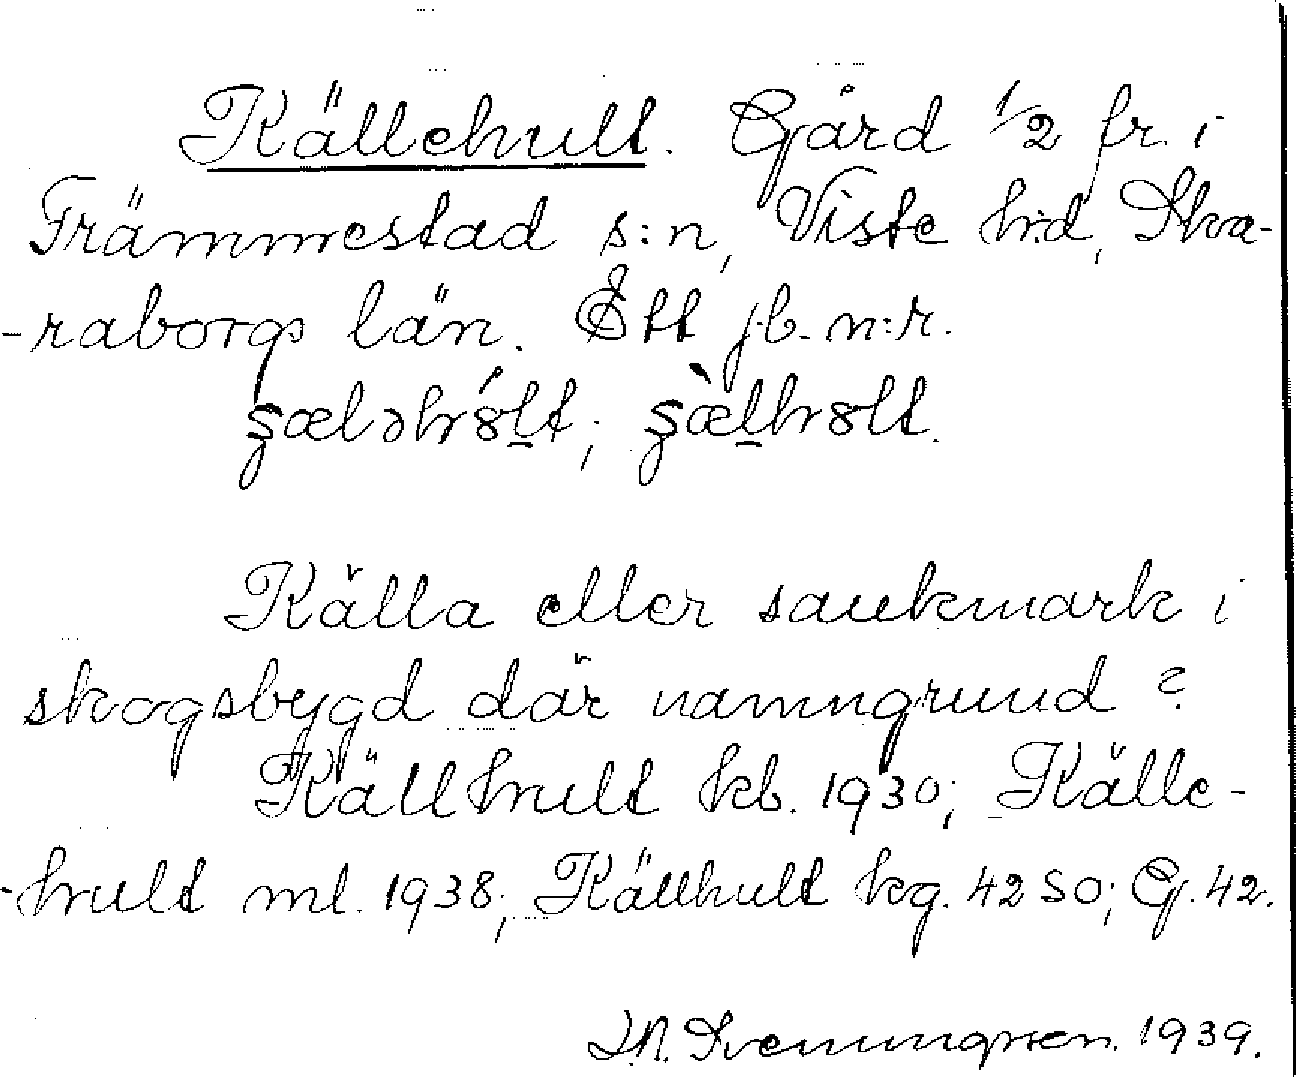 Källehult. Gård 1/2 fr. i
Främmestad s:n, Viste h:d, Ska-
-raborgs län. Ett jb. n:r.
Källa eller sankmark i
skogsbygd där namngrund?
Källhult kb. 1930; Källe-
-hult ml. 1938; Källhult kg. 42 SO; G. 42.
Sveningsson. 1939.